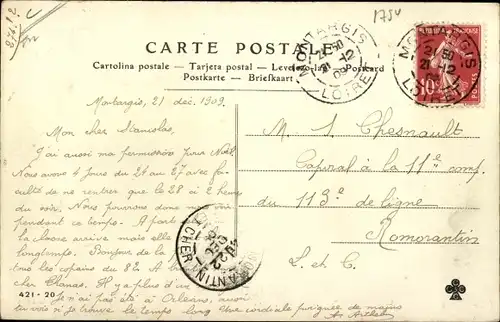 1754
CARTE POSTALE
Cartolina postale - Tarjeta postal - Levelező-lap - Postcard
Postkarte - Briefkaart
MONTARGIS
21 -12
09
LOIRET
MONTARGIS
21 -12
LOIRET
10
POSTES
Montargis, 21 déc. 1909.
Mon cher Stanislas,
J'ai aussi ma permission pour Noël.
Nous avons 4 jours du 24 au 27 avec fa-
culté de ne rentrer que le 28 à 2 heures
du soir. Nous pourrons donc nous voir
pendant ce temps. A part
la classe arrive mais elle
longtemps. Bonjour de la
tous les copains du 82e A b
cher Chanas. Il y a plus d'un
Je n'ai pas été à Orléans, aussi
tu vois si je trouve le temps long Une cordiale poignée de mains
M. S. Chesnault
Caporal à la 11e comp.
du 113e de ligne
Romorantin
L. et C.
ROMORANTIN
CHER
421 - 20